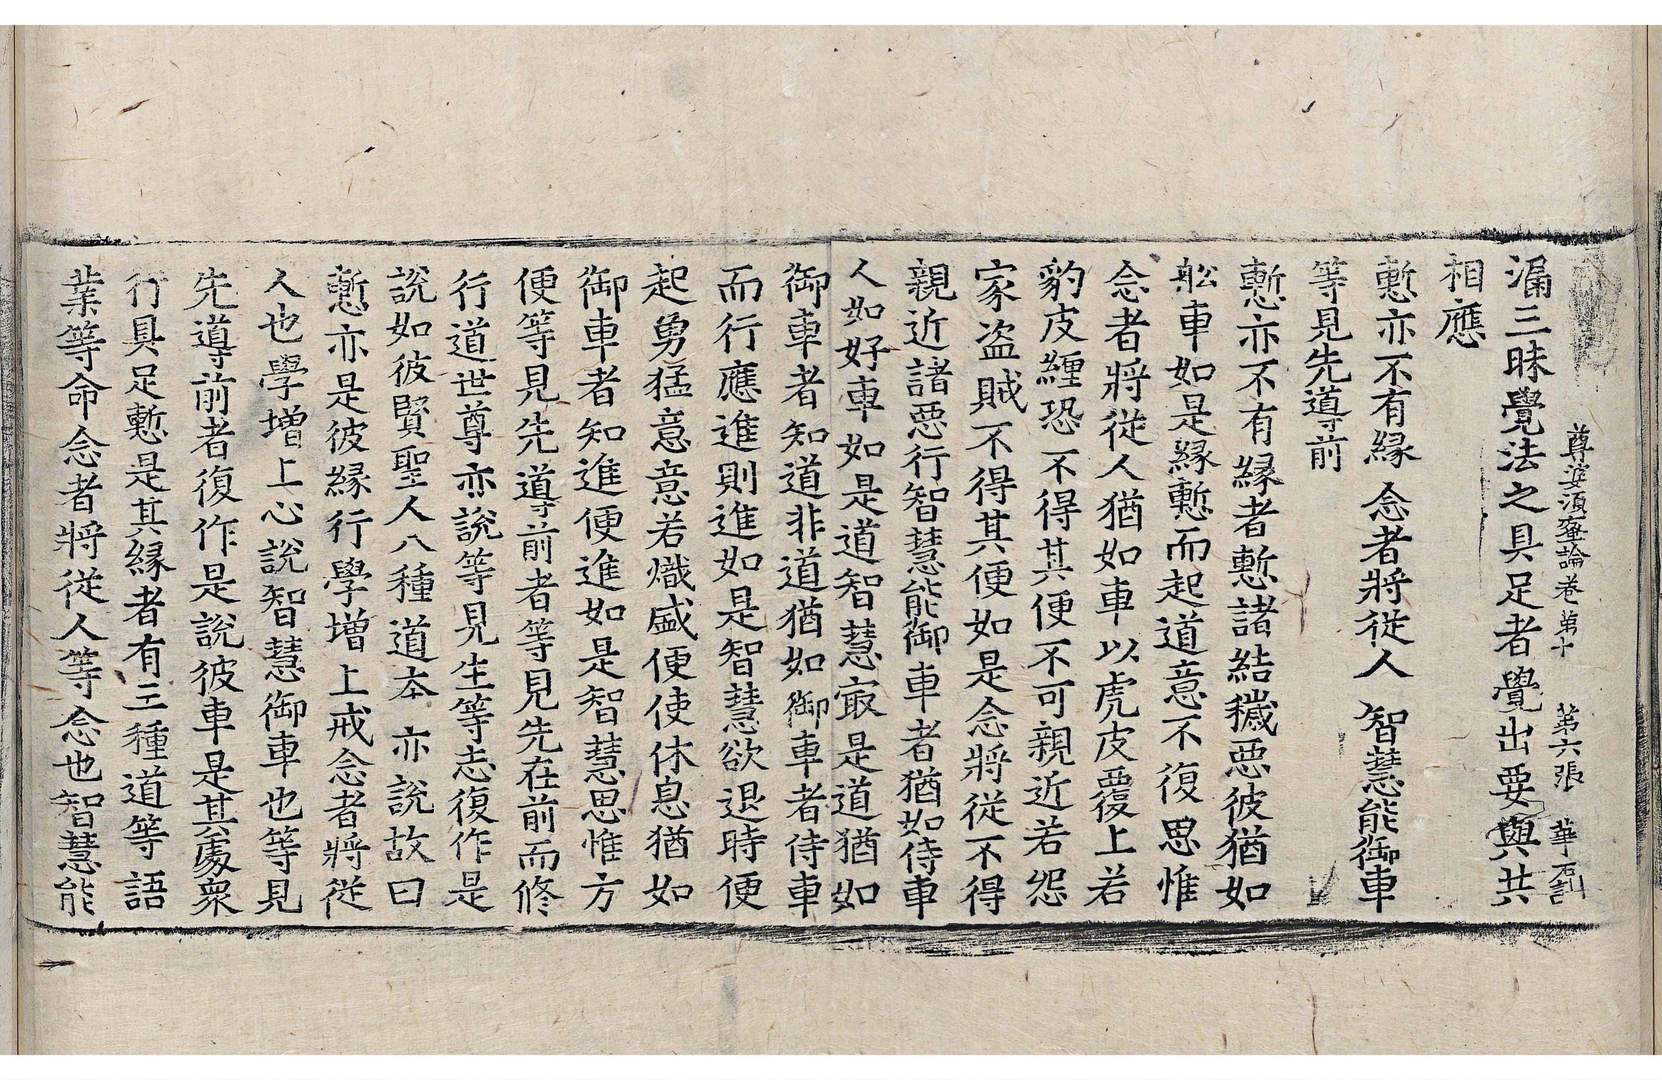 尊婆須蜜論卷第十　第六張　華
漏三昧覺法之具足者覺出要與共
相應
慙亦不有緣　念者將從人　智慧能御車
等見先導前
慙亦不有緣者慙諸結穢惡彼猶如
舩車如是緣慙而起道意不復思惟
念者將從人猶如車以虎皮覆上若
豹皮纏恐不得其便不可親近若怨
家盜賊不得其便如是念將從不得
親近諸惡行智慧能御車者猶如侍車
人如好車如是道智慧㝡是道猶如
御車者知道非道猶如御車者侍車
而行應進則進如是智慧欲退時便
起勇猛意意若熾盛便使休息猶如
御車者知進便進如是智慧思惟方
便等見先導前者等見先在前而修
行道世尊亦說等見生等志復作是
說如彼賢聖人八種道夲亦說故曰
慙亦是彼緣行學增上戒念者將從
人也學增上心說智慧御車也等見
先導前者復作是說彼車是其處衆
行具足慙是其緣者有三種道等語
業等命念者將從人等念也智慧能